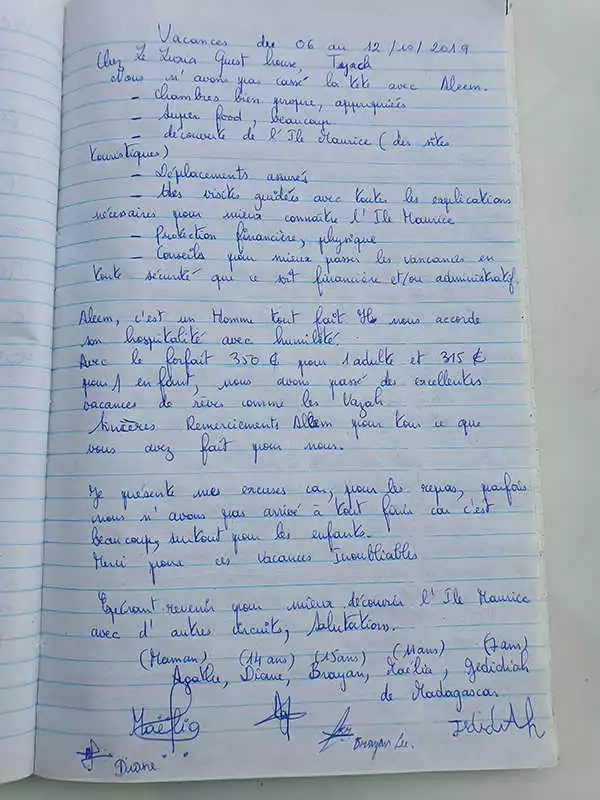 Vacances du 06 au 12/10/2019
Chez Le Guest house,
Nous n'avons pas cassé la tete avec Aleem.
- Chambres bien propre, appropriées
- Super food, beaucoup
- découverte de l'Ile Maurice (des sites
touristiques)
- Déplacements assurés
- des visites guidées avec toutes les explications
nécessaires pour mieux connaitre l'Ile Maurice
- Protection financière, physique
- Conseils pour mieux passer les vancances en
toute sécurité que ce soit financière et/ou administratif.
Aleem, c'est un Homme tout fait nous accorde
son hospitalité avec humilité.
Avec le forfait 350 € pour 1 adulte et 315 €
pour 1 enfant, nous avons passé des excellentes
vacances de rêves comme les Vazah.
Sincères Remerciements Aleem pour tous ce que
vous avez fait pour nous.
Je présente mes excuses car, pour les repas, parfois
nous n'avons pas arrivé à tout finir car c'est
beaucoup, surtout pour les enfants.
Merci pour ces vacances Inoubliables
Espérant revenir pour mieux découvrir l'Ile Maurice
avec d'autres circuits, Salutations.
(Maman) (14 ans) (15ans) (11ans) (7ans)
Agathe, Diane, Brayan, Maëlie, Jedidiah
de Madagascar
Brayan Jedidiah
Diane